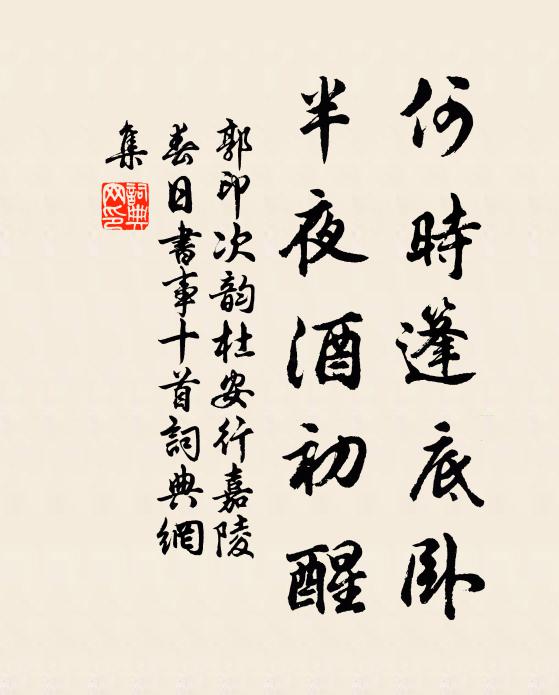 何時蓬底卧
半夜酒初醒
郭印次韵杜安行嘉陵
春日書事十首詞典網
集
詞典
网印